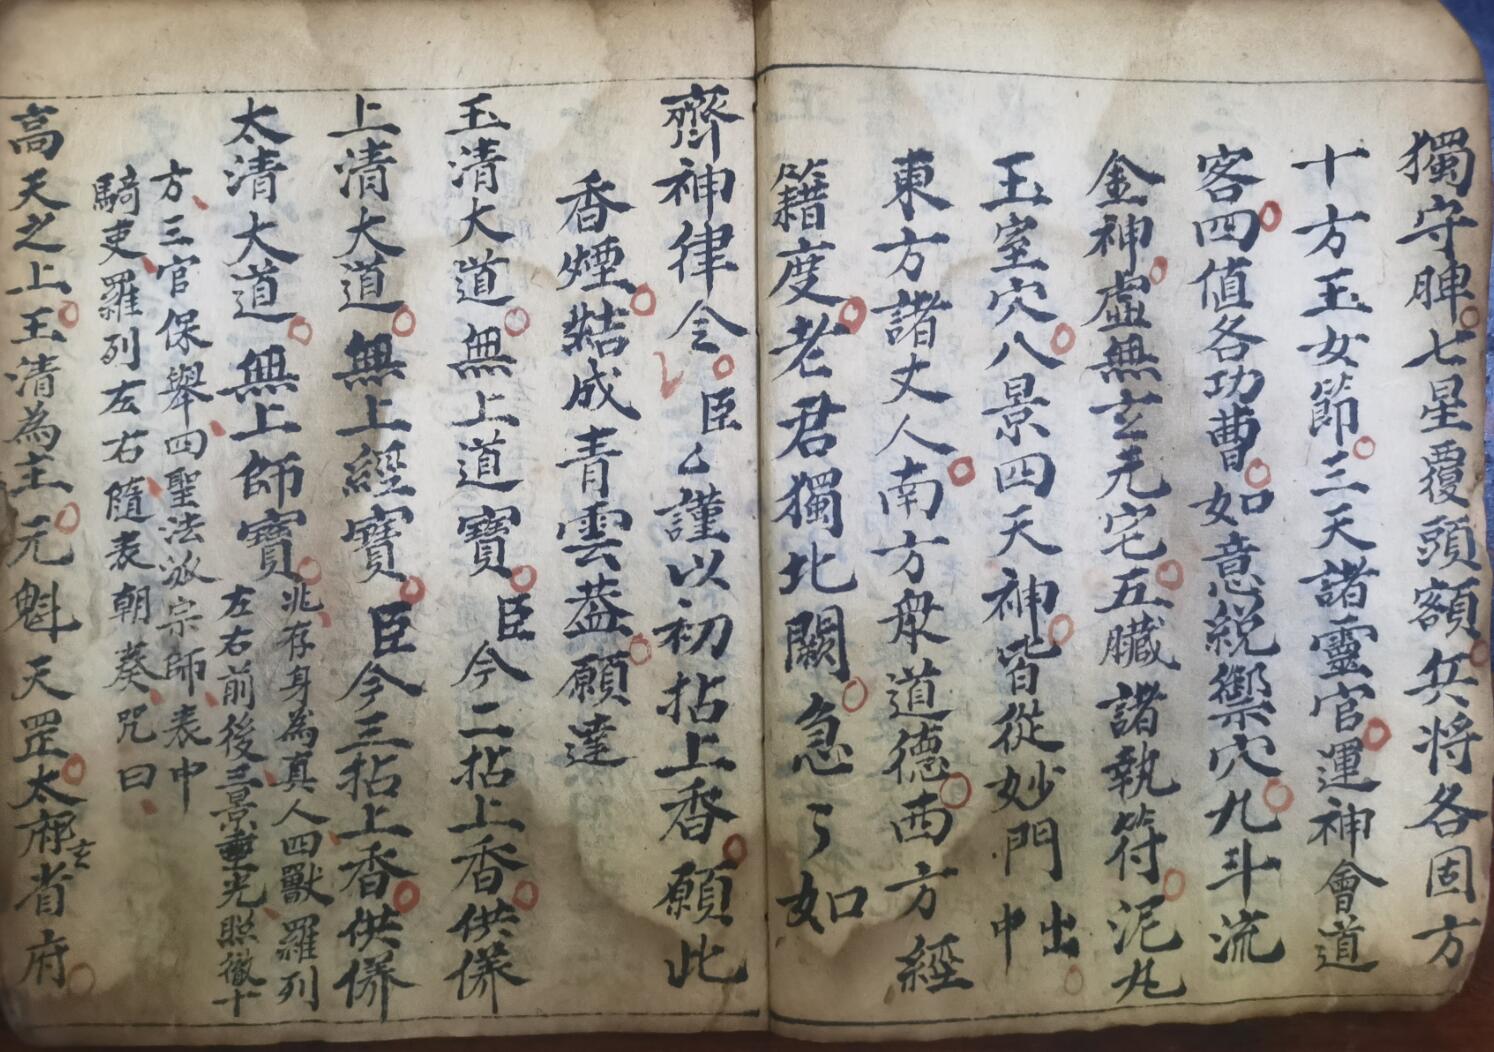 獨守脾七星覆頭額兵将各固方
十方玉女節三天諸靈官運神會道
客四值各功曹如意統禦穴九斗流
金神虛無玄元宅五臟諸執符泥丸
玉室穴八景四天神皆從妙門中出
東方諸丈人南方衆道德西方經
籍度老君獨北闕急々如
齊神律令臣厶謹以初拈上香願此
香煙結成青雲蓋願達
玉清大道無上道寳臣今二拈上香供養
上清大道無上經寳臣今三拈上香供養
太清大道無上師寳
兆存身為真人四獸羅列
左右前後三景重光照徹十
方三官保舉四聖法派宗師表中
騎吏羅列左右隨表朝奏咒曰
高天之上玉清為主元魁天罡太玄府省府